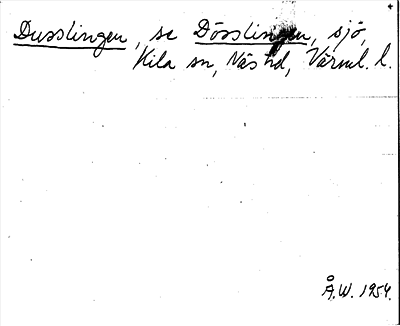 Dusslingen, se Dösslingen, sjö,
Kila sn, Näs hd, Värml. l.
Å.W. 1954.